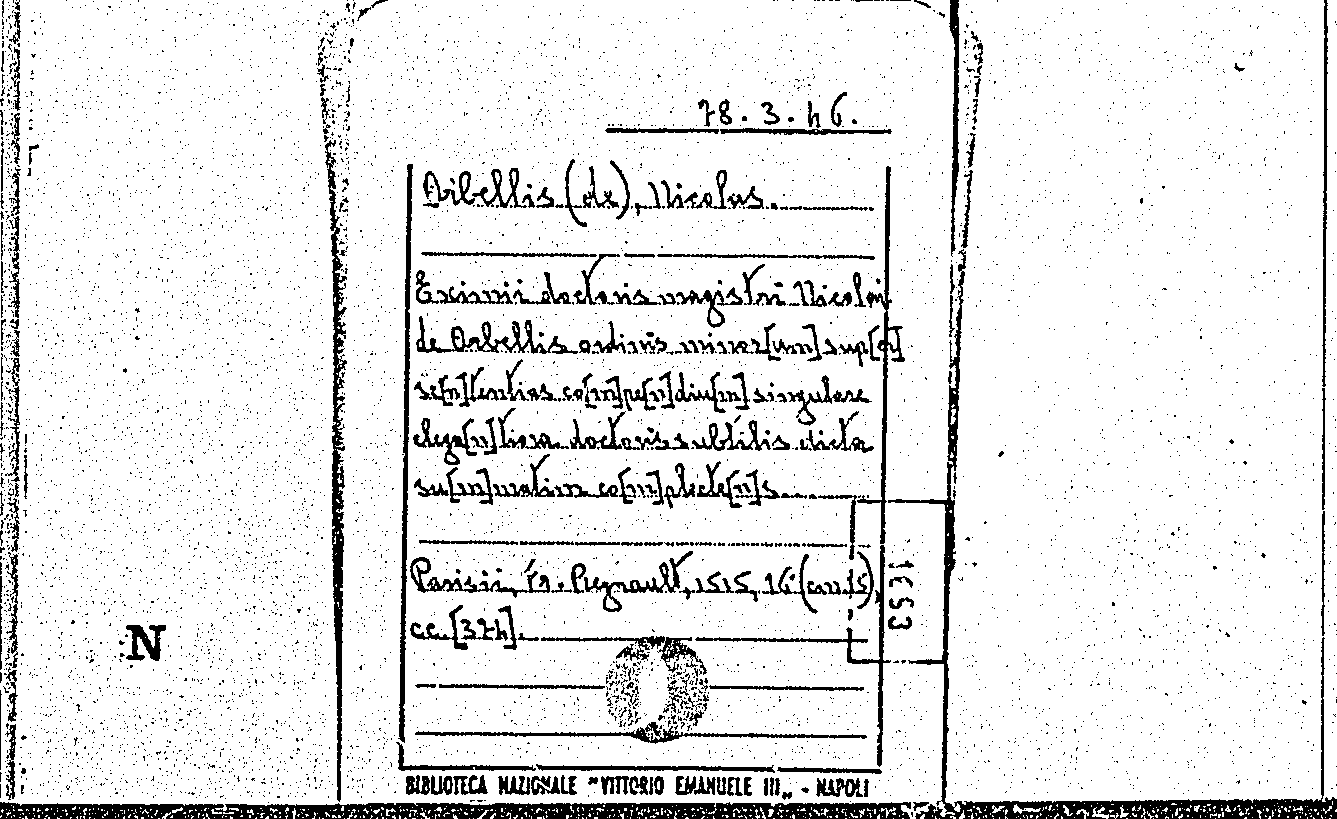 78.3.46.
Orbellis (de), Nicolas.
Eximii doctoris magistri Nicolai
de Orbellis ordinis minor[um] sup[er]
se[n]tentias co[m]pe[n]diu[m] singulare
elega[n]tiora doctoris subtilis dicta
su[m]matim co[m]plecte[n]s.
Parisii, Fr. Regnault, 1515, 16° (cm.15),
cc. [374].
1653
N
BIBLIOTECA NAZIONALE "VITTORIO EMANUELE III„ - NAPOLI